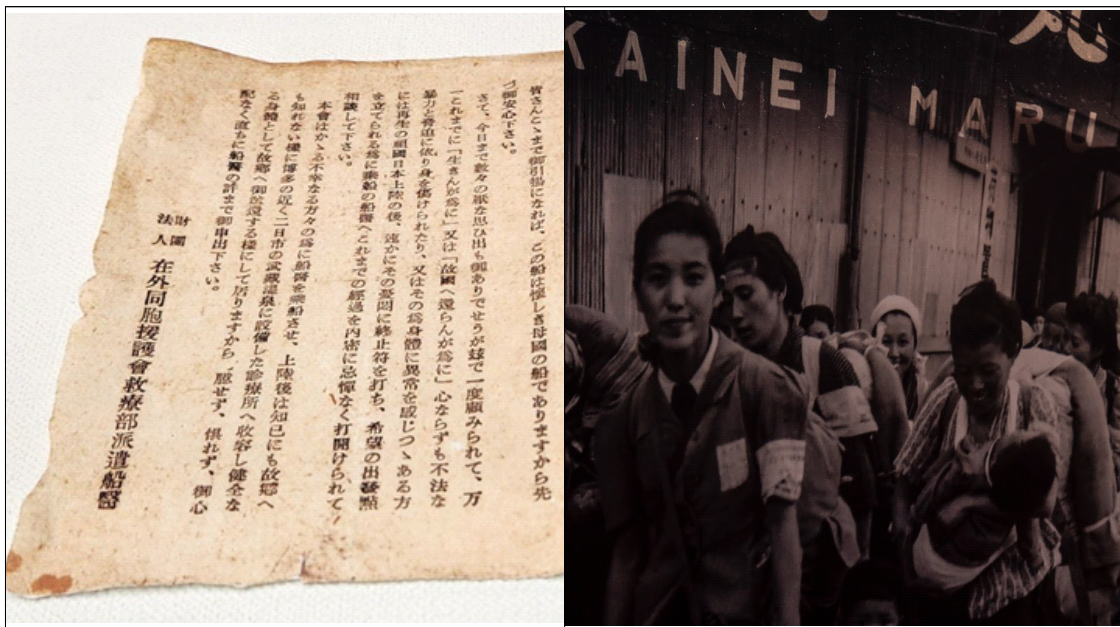 皆さんこゝまで御引揚になれば、この船は懐しき母國の船でありますから先
づ御安心下さい。
さて、今日まで數々の嫌な思ひ出も御ありでせうが茲で一度顧みられて、万
一これまでに「生きんが爲に」又は「故國へ還らんが爲に」心ならずも不法な
暴力と脅迫に依り身を傷けられたり、又はその爲身體に異常を感じつゝある方
には再生の祖國日本上陸の後、速かにその憂悶に終止符を打ち、希望の出發點
を立てられる爲に乘船の船醫へこれまでの經過を内密に忌憚なく打開けられて
相談して下さい。
本會はかゝる不幸なる方々の爲に船醫を乘船させ、上陸後は知己にも故郷へ
も知れない樣に博多の近く二日市の武藏温泉に設備した診療所へ收容し健全な
る身體として故郷へ御送還する樣にして居りますから、臆せず、惧れず、御心
配なく直ちに船醫の許まで御申出下さい。
財團
法人
在外同胞援護會救療部派遣船醫
KAINEI MARU
丸